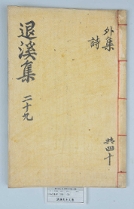 外集
詩
退溪集
二十九
共四十